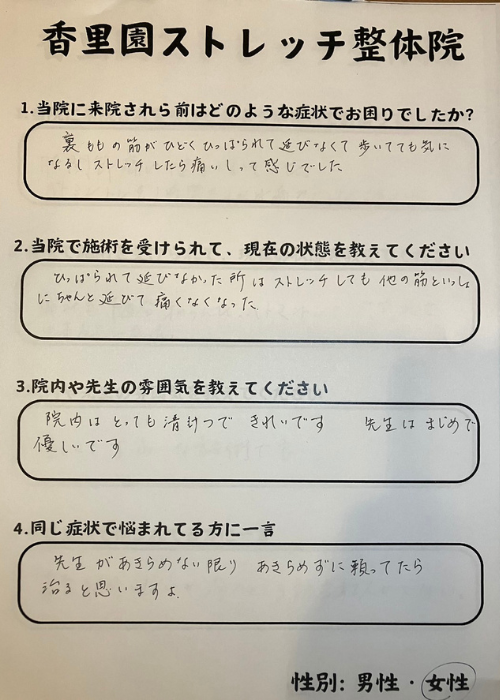 香里園ストレッチ整体院
1.当院に来院されら前はどのような症状でお困りでしたか?
裏ももの筋がひどくひっぱられて延びなくて歩いてても気に
なるしストレッチしたら痛いしって感じでした
2.当院で施術を受けられて、現在の状態を教えてください
ひっぱられて延びなかった所はストレッチしても他の筋といっしょ
にちゃんと延びて痛くなくなった
3.院内や先生の雰囲気を教えてください
院内はとっても清けつできれいです 先生はまじめで
優しいです
4.同じ症状で悩まれてる方に一言
先生があきらめない限り あきらめずに頼ってたら
治ると思いますよ。
性別: 男性・女性